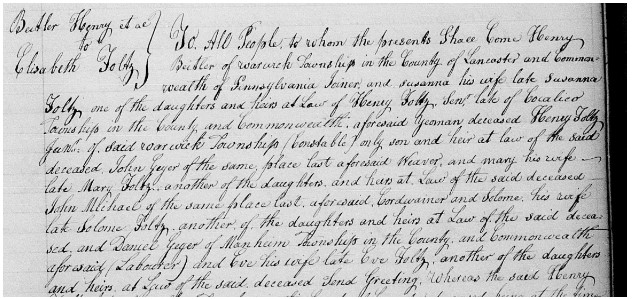 Beitler Henry et al
to
Elisabeth Foltz
To All People, to whom the presents Shall Come Henry
Beitler of warwick Township in the County of Lancaster and Common-
wealth of Pennsylvania Joiner, and susanna his wife late susanna
Foltz one of the daughters and heirs at Law of Henry Foltz Senr. late of Cocalico
Township in the County and Commonwealth aforesaid Yeoman deceased Henry Foltz
Junr. of said warwick Township (Constable) only son and heir at law of the said
deceased, John Geyer of the same place last aforesaid Weaver, and mary his wife
late Mary Foltz another of the daughters and heirs at Law of the said deceased
John Michael of the same place last aforesaid, Cordwainer and Solome his wife
late Solome Foltz another of the daughters and heirs at Law of the said decea-
sed, and Daniel Geyer of Manheim Township in the County and Commonwealth
aforesaid (Labourer) and Eve his wife late Eve Foltz another of the daughters
and heirs at Law of the said deceased Send Greeting, Whereas the said Henry